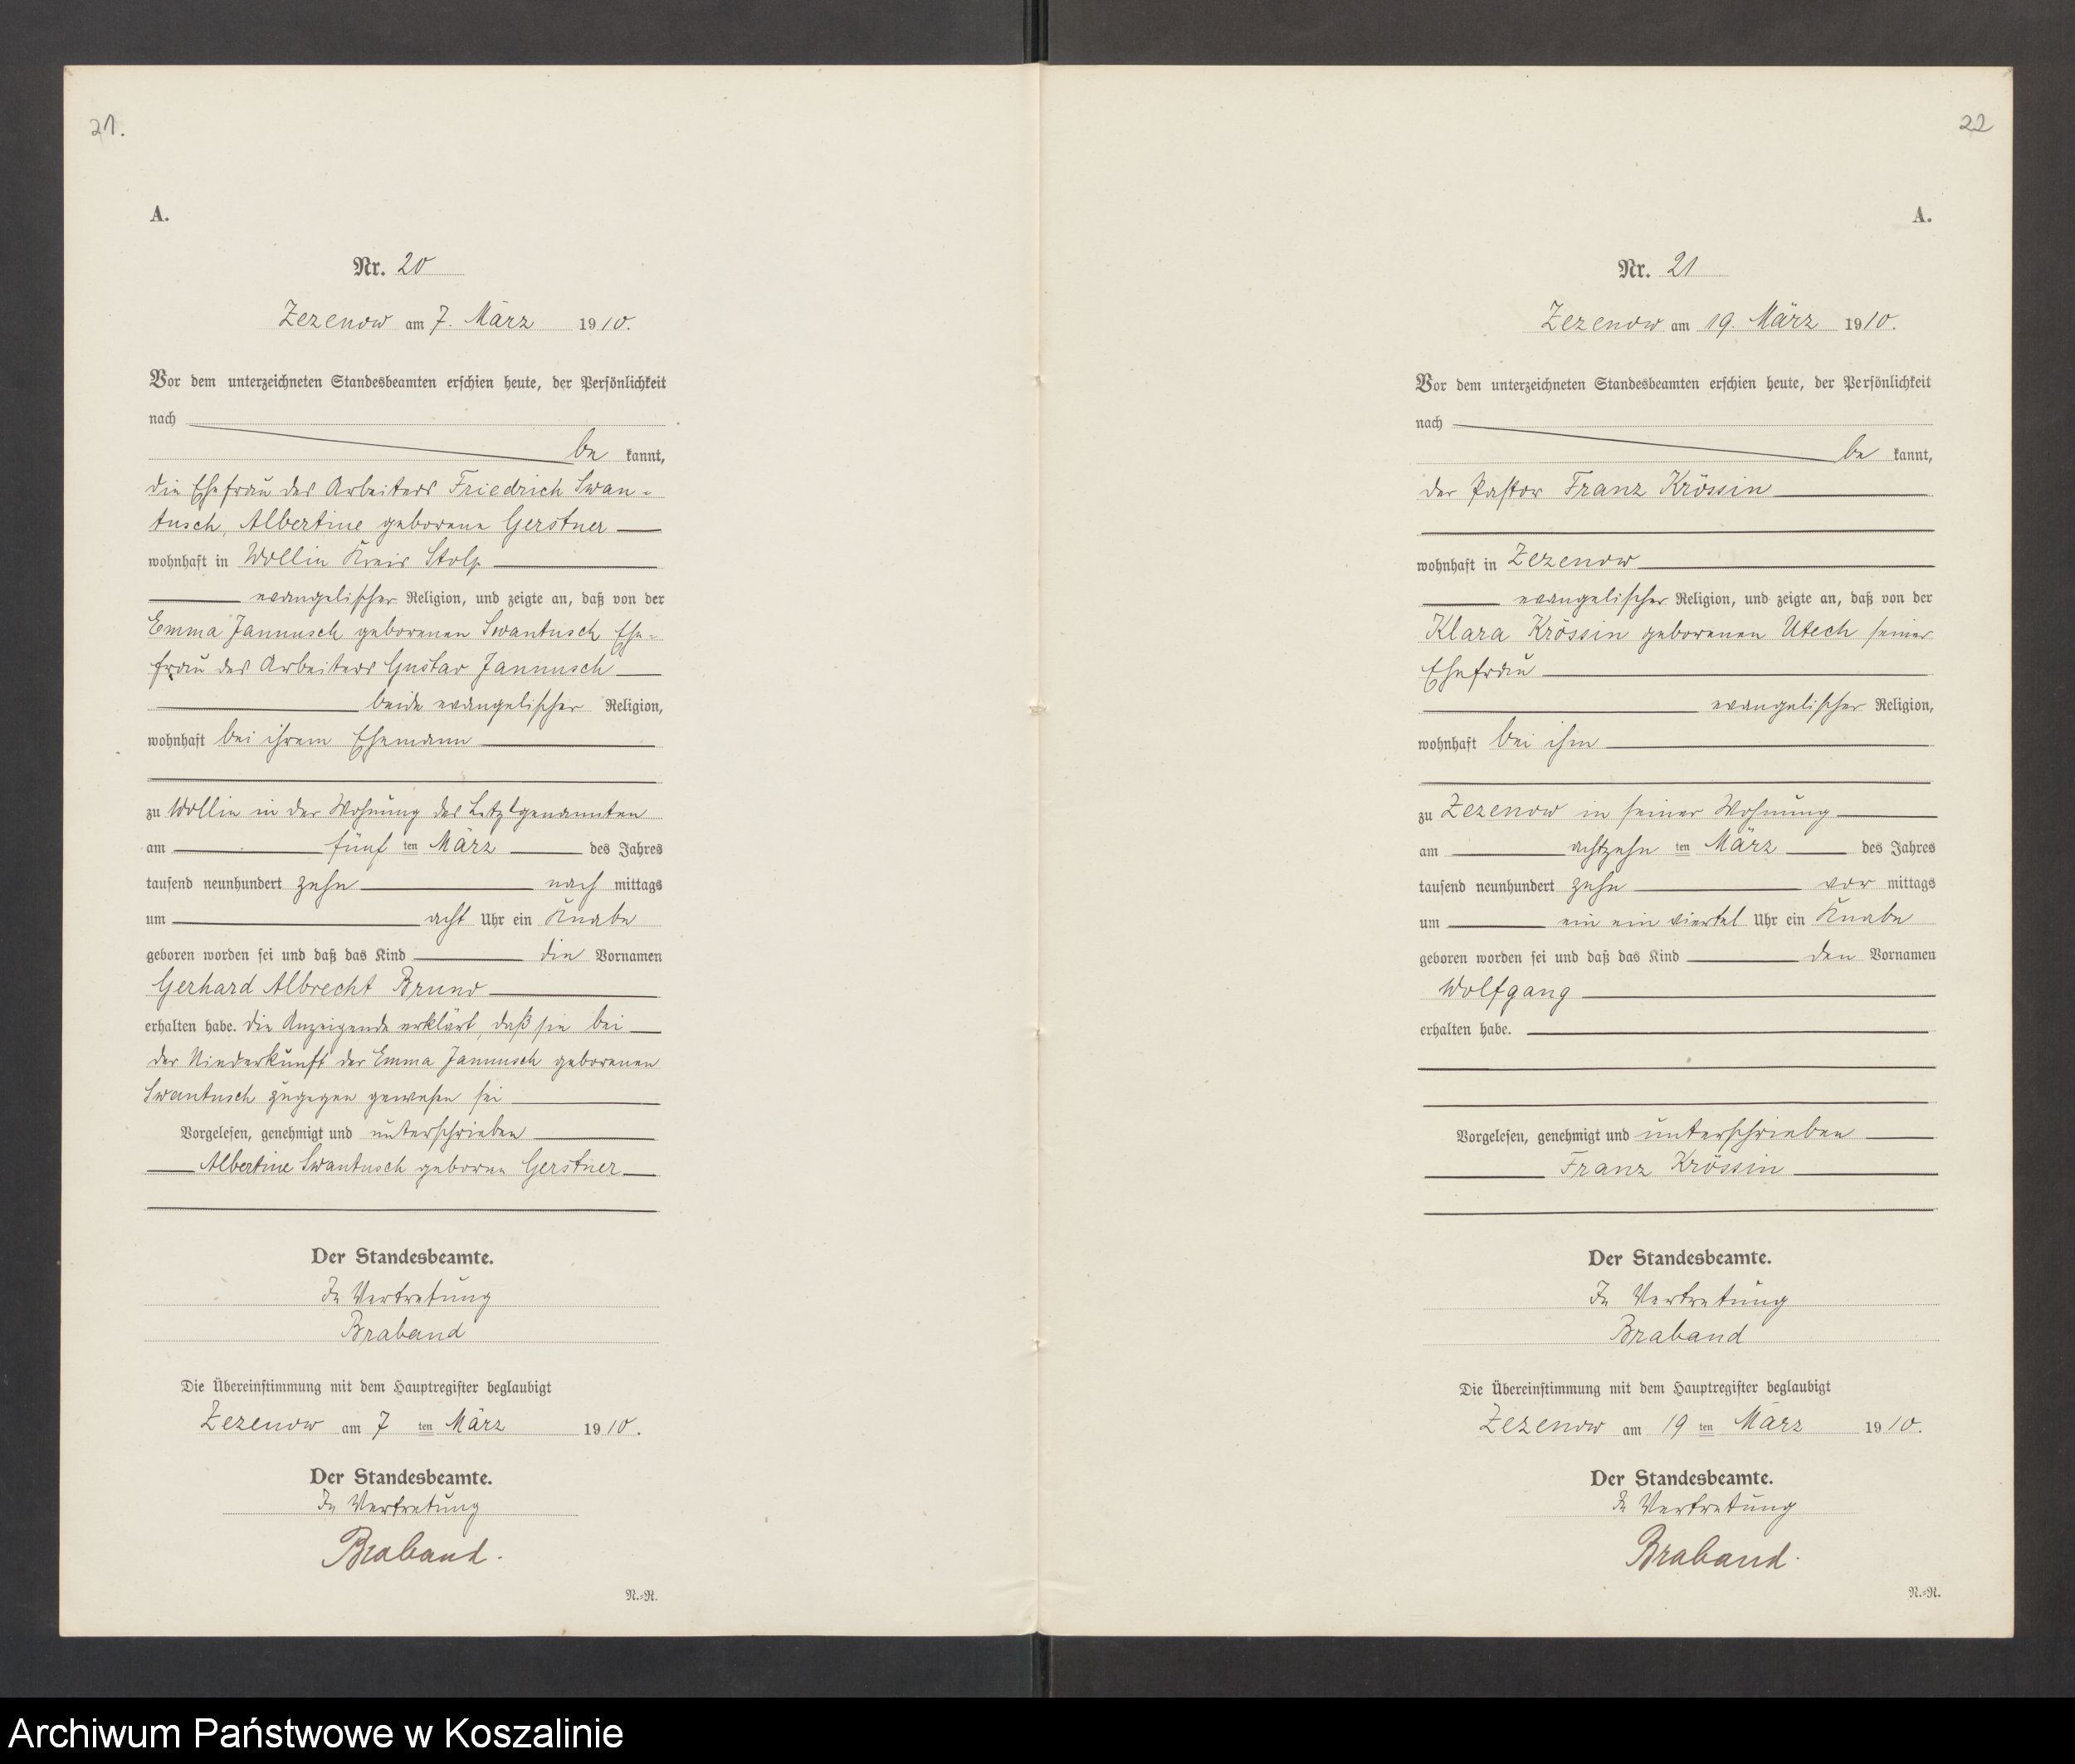 21.
A.
Nr. 20
Zezenow am 7. März 1910.
Vor dem unterzeichneten Standesbeamten erschien heute, der Persönlichkeit
nach
be kannt,
die Ehefrau des Arbeiters Friedrich Swan-
tusch, Albertine geborene Gerstner
wohnhaft in Wollin Kreis Stolp
evangelischer Religion, und zeigte an, daß von der
Emma Jannusch geborenen Swantusch Ehe-
frau des Arbeiters Gustav Jannusch
beide evangelischer Religion,
wohnhaft bei ihrem Ehemann
zu Wollin in der Wohnung des Letztgenannten
am fünf ten März des Jahres
tausend neunhundert zehn nach mittags
um acht Uhr ein Knabe
geboren worden sei und daß das Kind die Vornamen
Gerhard Albrecht Bruno
erhalten habe. Die Anzeigende erklärt, daß sie bei
der Niederkunft der Emma Jannusch geborenen
Swantusch zugegen gewesen sei
Vorgelesen, genehmigt und unterschrieben
Albertine Swantusch geborene Gerstner
Der Standesbeamte.
In Vertretung
Braband
Die Übereinstimmung mit dem Hauptregister beglaubigt
Zezenow am 7 ten März 1910.
Der Standesbeamte.
In Vertretung
Braband.
N.=R.
22
A.
Nr. 21
Zezenow am 19. März 1910.
Vor dem unterzeichneten Standesbeamten erschien heute, der Persönlichkeit
nach
be kannt,
der Pastor Franz Krössin
wohnhaft in Zezenow
evangelischer Religion, und zeigte an, daß von der
Klara Krössin geborenen Utech seiner
Ehefrau
evangelischer Religion,
wohnhaft bei ihm
zu Zezenow in seiner Wohnung
am achtzehn ten März des Jahres
tausend neunhundert zehn vor mittags
um ein ein viertel Uhr ein Knabe
geboren worden sei und daß das Kind den Vornamen
Wolfgang
erhalten habe.
Vorgelesen, genehmigt und unterschrieben
Franz Krössin
Der Standesbeamte.
In Vertretung
Braband
Die Übereinstimmung mit dem Hauptregister beglaubigt
Zezenow am 19 ten März 1910.
Der Standesbeamte.
In Vertretung
Braband.
N.=R.
Archiwum Państwowe w Koszalinie